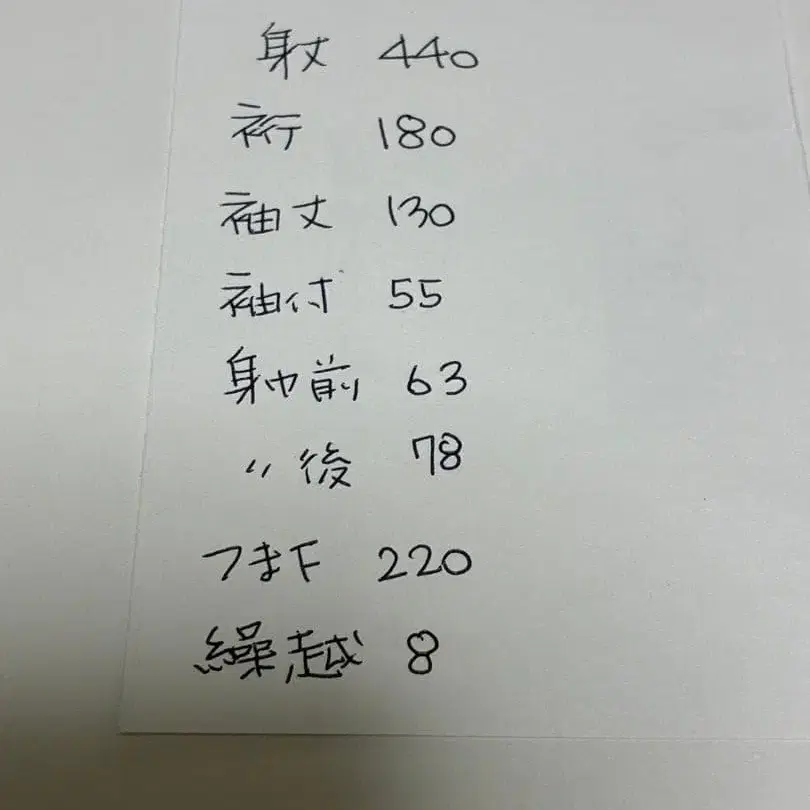 身丈 440
裄 180
袖丈 130
袖付 55
身巾前 63
〃後 78
つま下 220
繰越 8